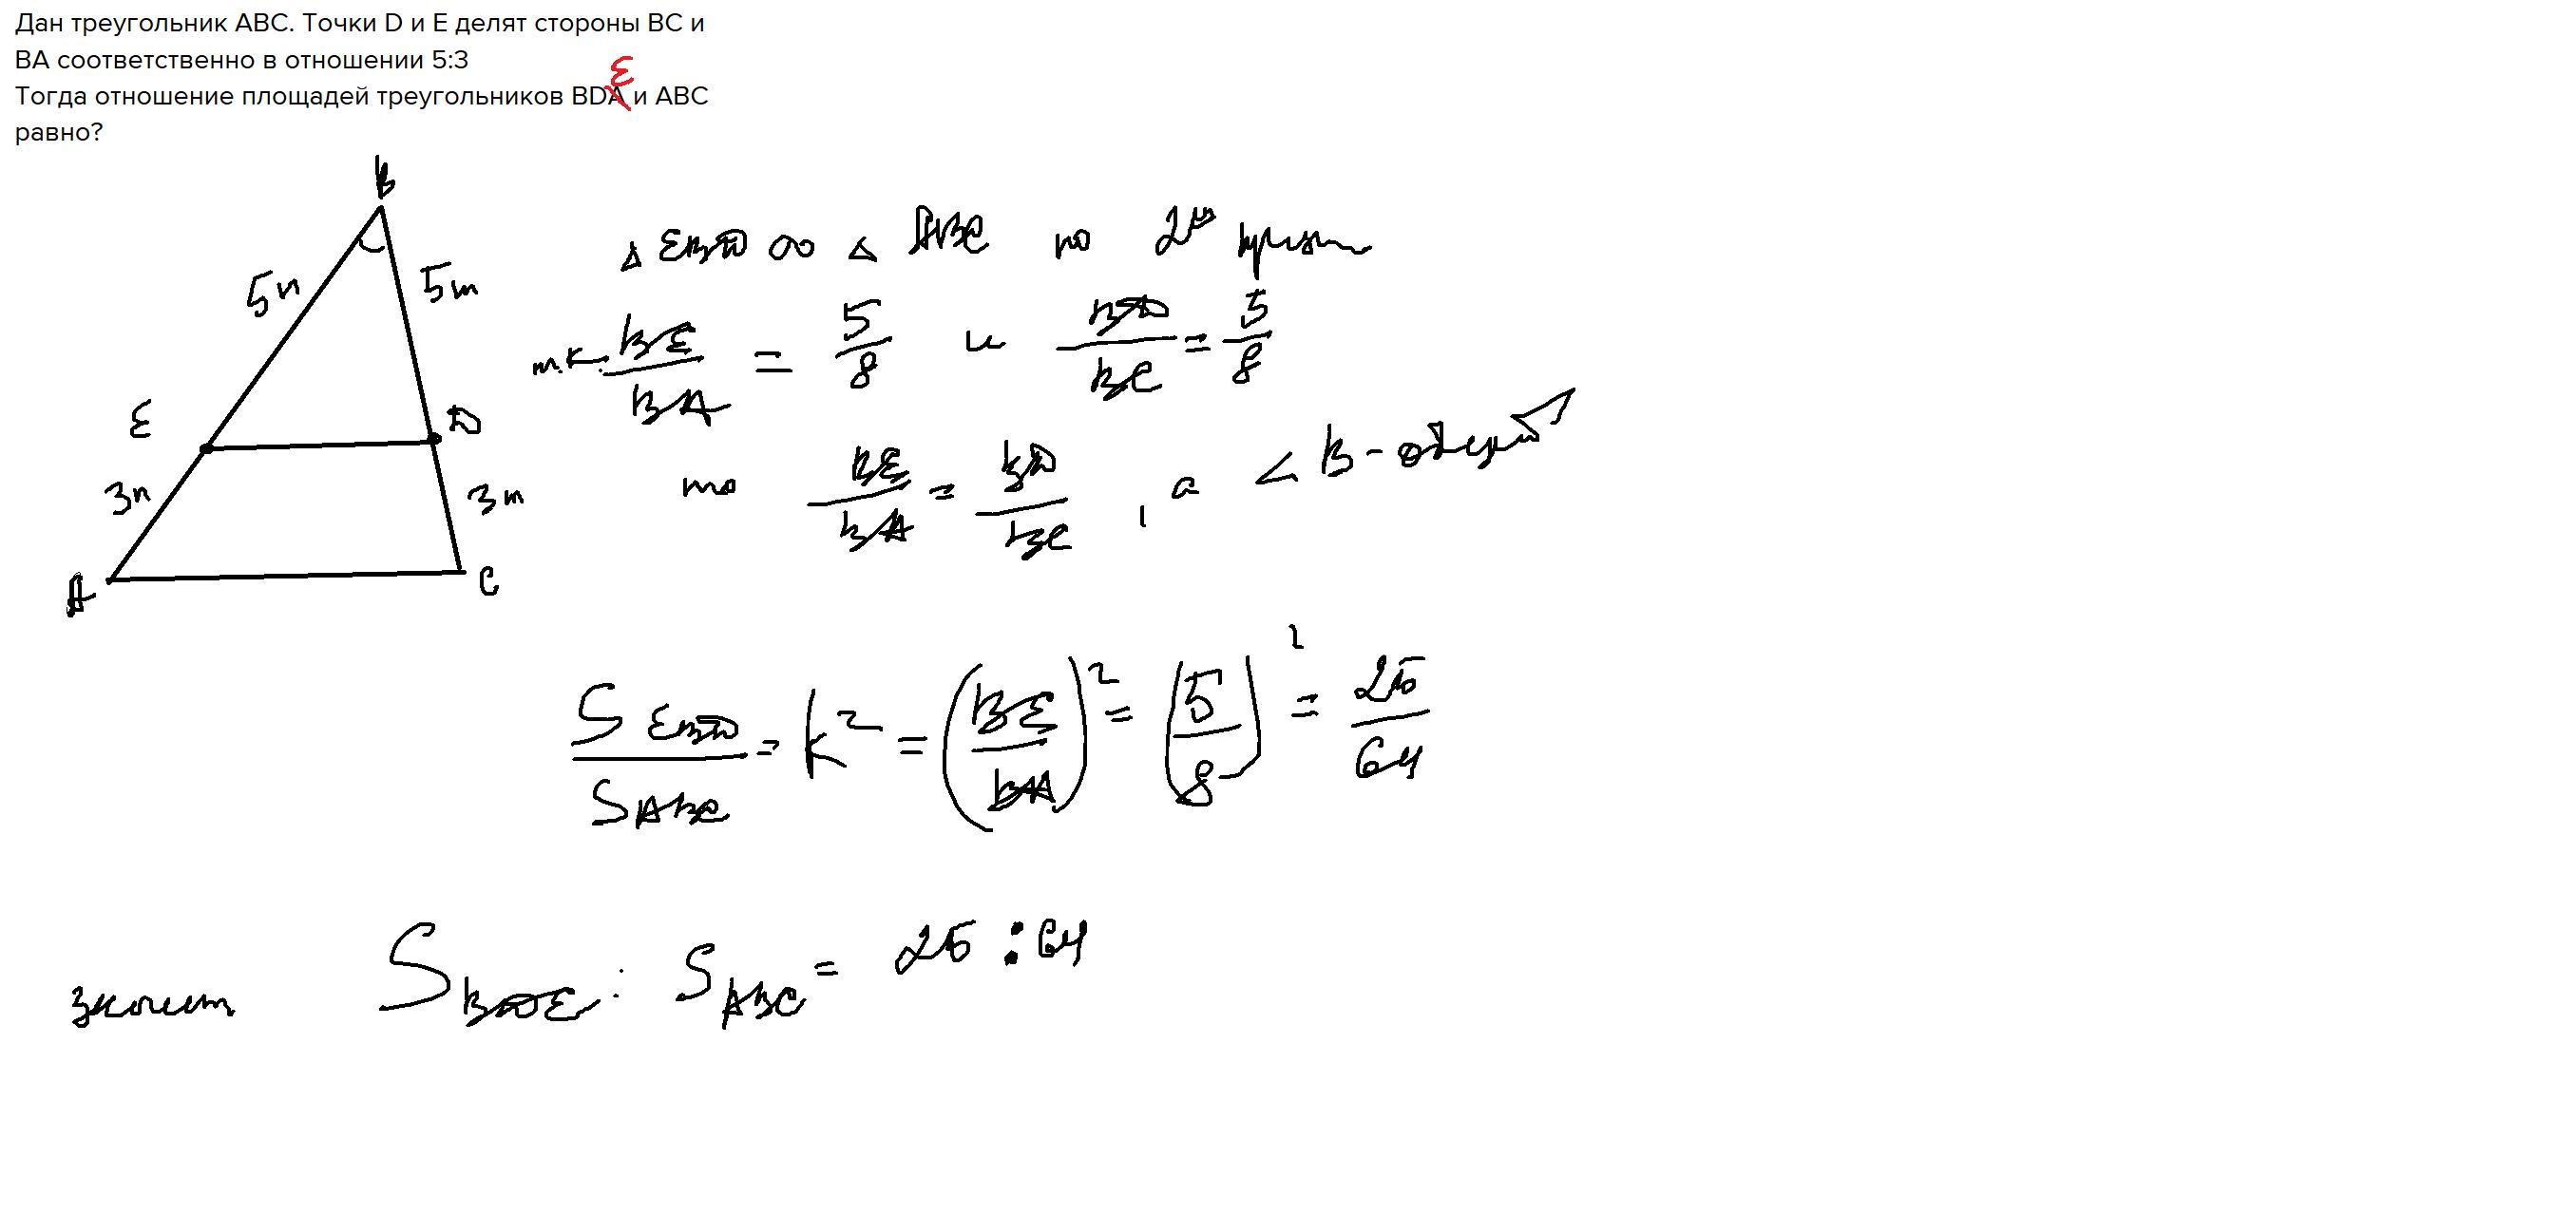 Дан треугольник ABC. Точки D и E делят стороны BC и
BA соответственно в отношении 5:3
E
Тогда отношение площадей треугольников BDA и ABC
равно?
B
5n 5m
E D
3n 3m
A C
△ EBD ∞ △ ABC по 2му
т.к. BE/BA = 5/8 и BD/BC = 5/8
то BE/BA = BD/BC , а ∠ B - общий
S EBD / S ABC = k² = (BE/BA)² = (5/8)² = 25/64
значит S BDE : S ABC = 25 : 64